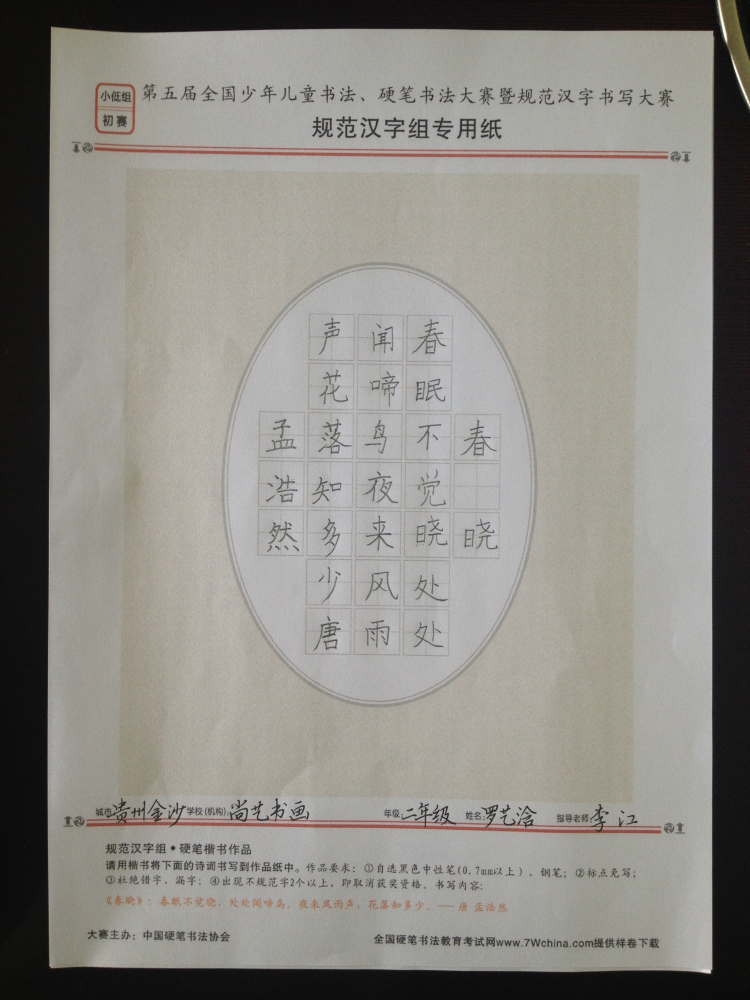 小低组
初赛
第五届全国少年儿童书法、硬笔书法大赛暨规范汉字书写大赛
规范汉字组专用纸
春晓
春眠不觉晓处处
闻啼鸟夜来风雨
声花落知多少唐
孟浩然
城市:贵州金沙 学校(机构):尚艺书画 年级:二年级 姓名:罗艺 指导老师:李江
规范汉字组•硬笔楷书作品
请用楷书将下面的诗词书写到作品纸中。作品要求：①自选黑色中性笔(0.7mm以上)、钢笔；②标点免写；
③杜绝错字、漏字；④出现不规范字2个以上，即取消获奖资格。书写内容：
《春晓》：春眠不觉晓，处处闻啼鸟，夜来风雨声，花落知多少。—— 唐 孟浩然
大赛主办：中国硬笔书法协会 全国硬笔书法教育考试网www.7Wchina.com提供样卷下载